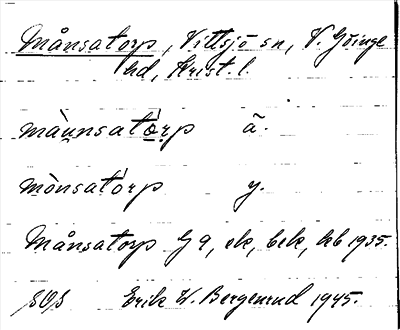 Månsatorp, Vittsjö sn, V. Göinge
hd, Krist. l.
màu̯nsató̱rp ä.
mònsatórp y.
Månsatorp G 9, ek, bek, kb 1935.
SOS Erik W. Bergenrud 1945.